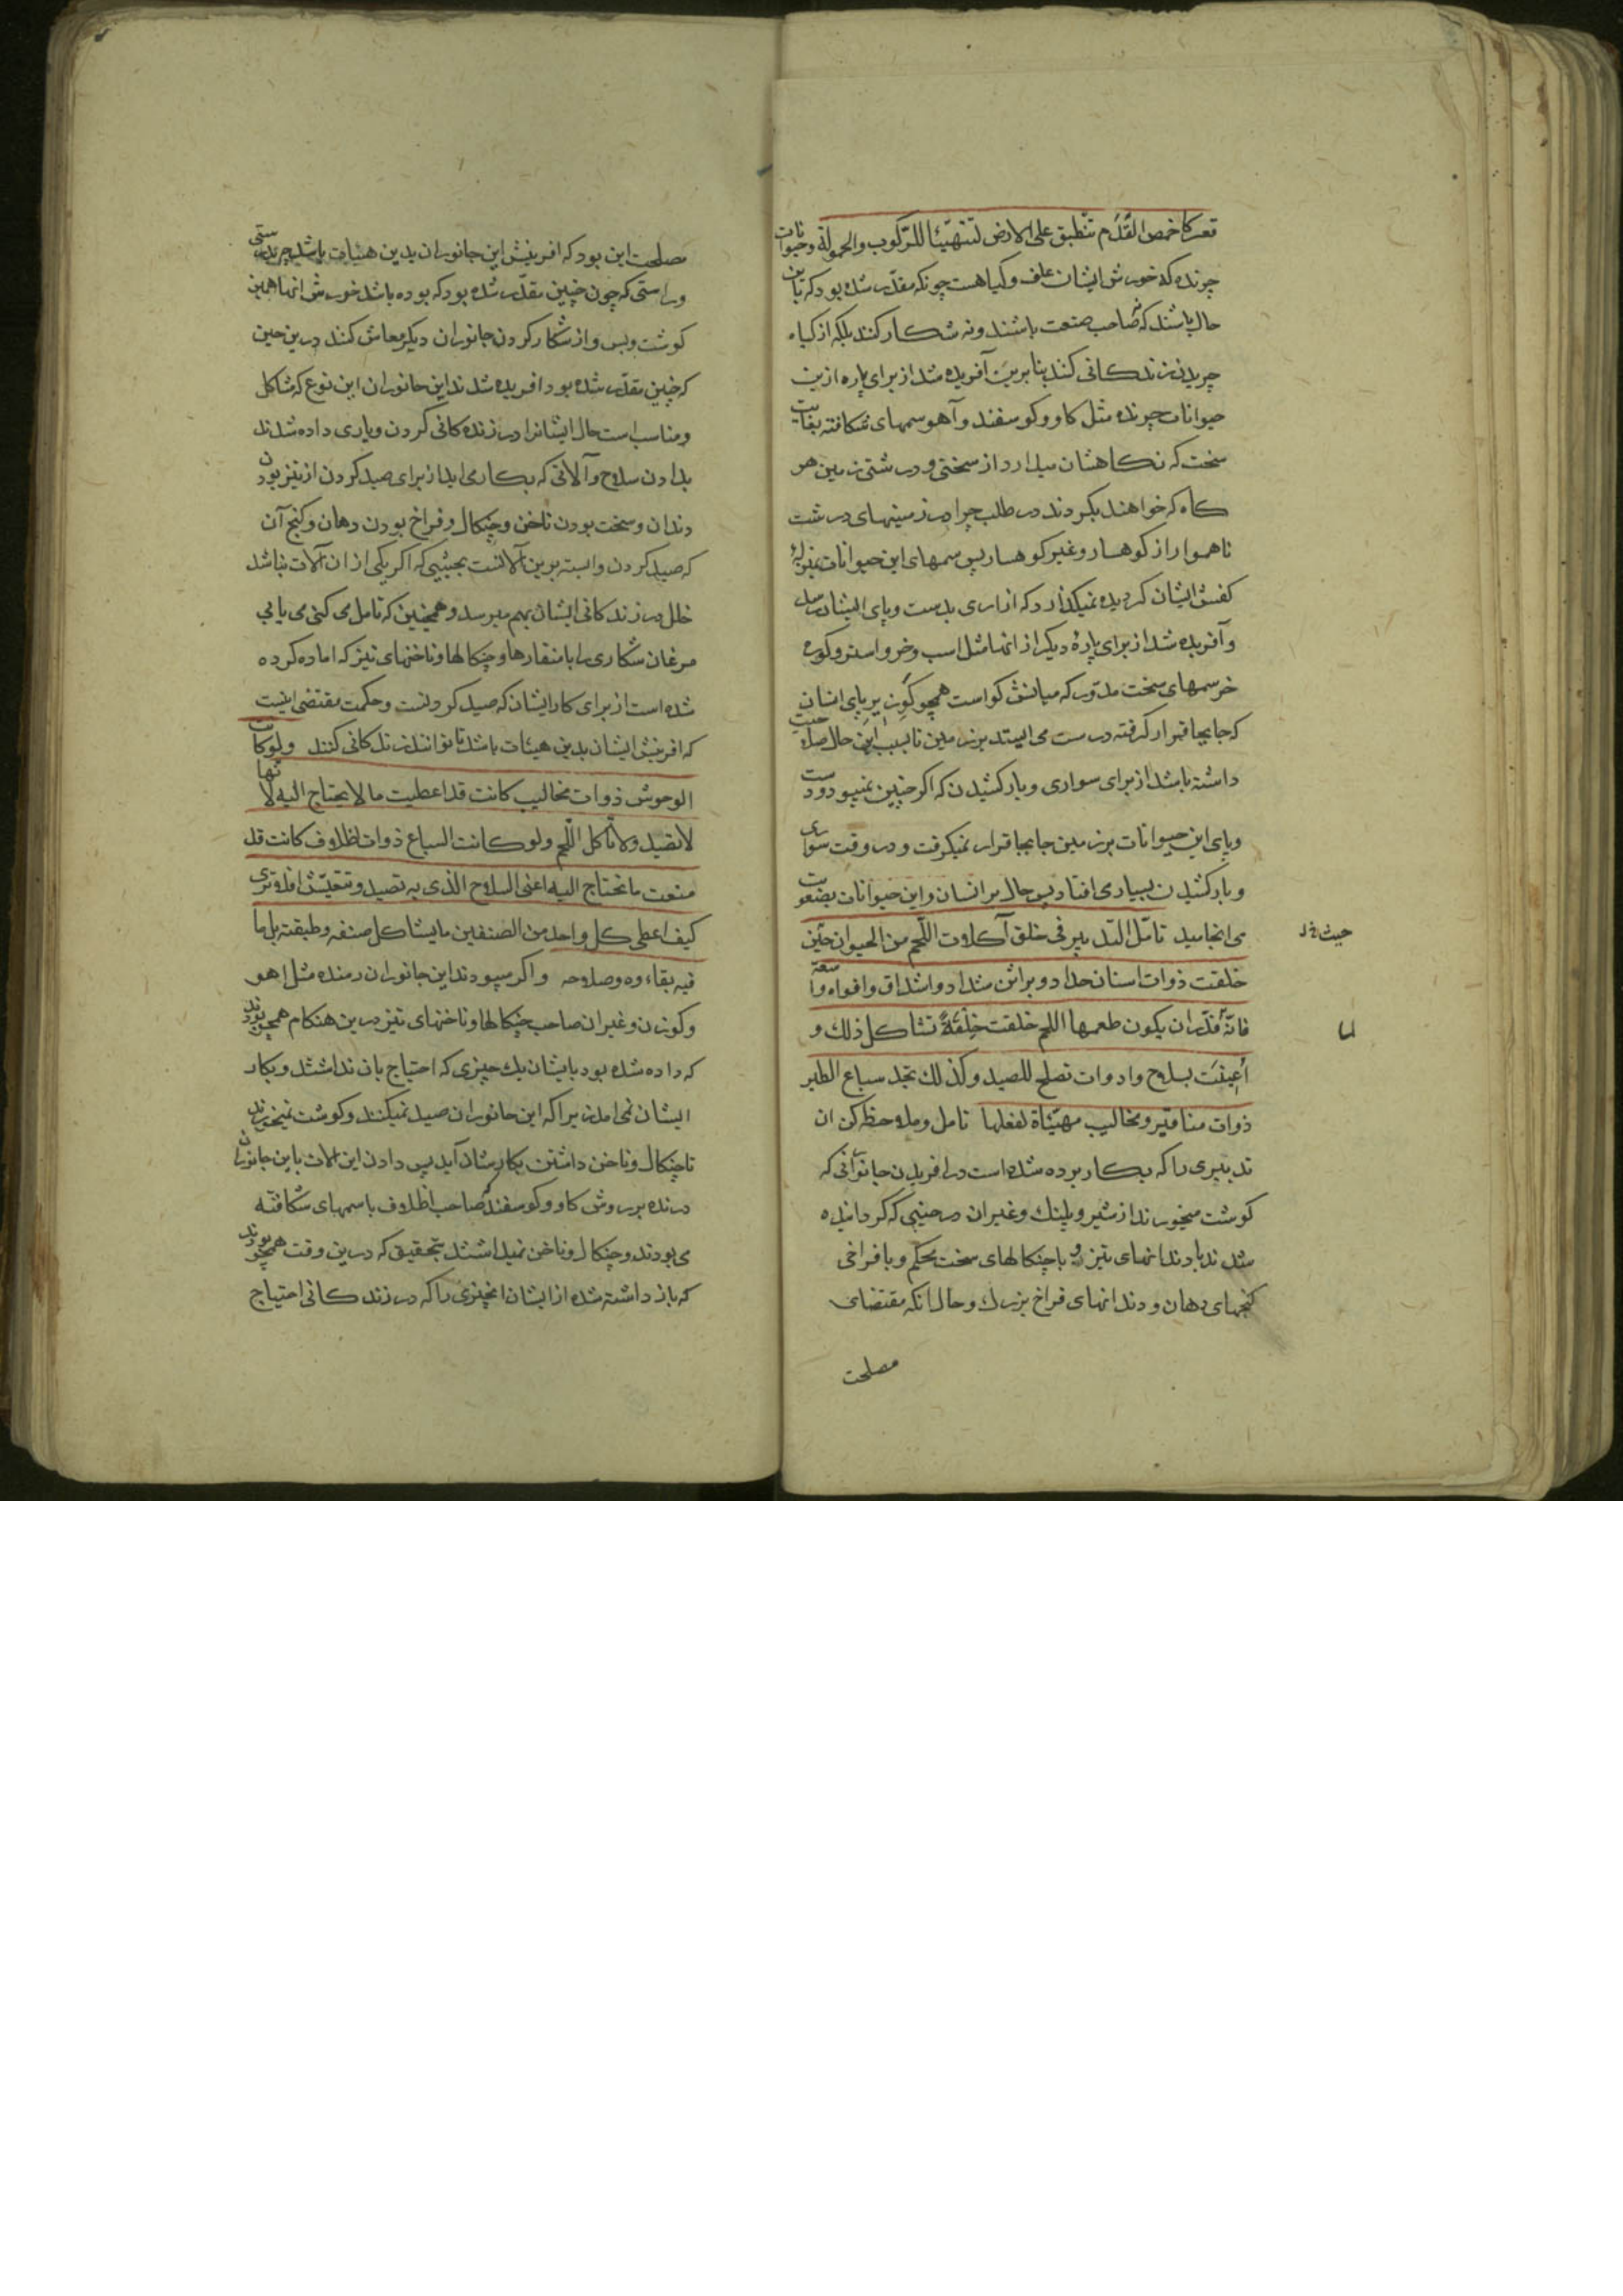 قعر کاخمص القَدَم تنطبق علی الارض لتتهیّئا للرّکوب والحمولة وحیوانات
چرنده که خورش ایشان علف وکیاهست چونکه مقدّر شده بود که باین
حال باشند که نه صاحب صنعت باشند ونه شکار کنند بلکه از کیاه
چریدن زندکانی کنند بنا برین آفریده شد از برای پاره ازین
حیوانات چرنده مثل کاو وکوسفند وآهو سمهای شکافته بغایت
سخت که نکاهشان میدارد از سختی ودرشتی زمین هر
کاه که خواهند بکردند در طلب چرا در زمینهای درشت
ناهموار از کوهسار وغیر کوهسار پس سمهای این حیوانات بمنزلهٔ
کفش ایشان کردیده نمیکذارد که ازاری بدست وپای ایشان رسد
وآفریده شد از برای پارهٔ دیکر از انها مثل اسب وخر واستر وکوره
خر سمهای سخت مدوّر که میانش کواست همچو کوی زیر پای انسان
که جابجا قرار کرفته درست می ایستد بر زمین تا بسبب این حال صلاحیت
داشته باشد از برای سواری وبار کشیدن که اکر چنین نمیبود دست
وپای این حیوانات بر زمین جابجا قرار نمیکرفت ودر وقت سواری
وبار کشیدن بسیار می افتاد پس حال مر انسان واین حیوانات بصعوبت
می انجامید تامّل التّدبیر فی خلق آکلات اللّحم من الحیوان حین
حیث خ‌ل
خلقت ذوات اسنان حداد وبراثن شداد واشداق وافواه واسعة
فانّه قُدّر ان یکون طعمها اللحم خلقت خِلقَةً تشاکل ذلك و
لما
اُعینَت بسلاح وادوات تصلح للصید وکذلك تجد سباع الطیر
ذوات مناقیر ومخالیب مهیّئاة لفعلها تامل وملاحظه کن ان
تدبیری را که بکار برده شده است در افریدن جانورانی که
کوشت میخورند از شیر وپلنك وغیران در حینی که کردانیده
شدند با دندانهای تیز وبا چنکالهای سخت محکم وبا فراخی
کنجهای دهان ودندانهای فراخ بزرك وحال انکه مقتضای
مصلحت
مصلحت این بود که افرینش این جانوران بدین هیئات باشد
وراستی که چون چنین مقدّر شده بود که بوده باشد خورش انها همین
کوشت وبس واز شکار کردن جانوران دیکر معاش کنند درین حین
که چنین مقدّر شده بود افریده شدند این جانوران این نوع که مشاکل
ومناسب است حال ایشانرا در زنده کانی کردن ویاری داده شدند
بدادن سلاح وآلاتی که بکار می اید از برای صید کردن از تیز بودن
دندان وسخت بودن ناخن وچنکال وفراخ بودن دهان وکنج آن
که صید کردن وابسته برین آلاتست بحیثیتی که اکر یکی از ان آلات نباشد
خلل در زندکانی ایشان بهم میرسد وهمچنین که تامل می کنی می یابی
مرغان شکاری را با منقارها وچنکالها وناخنهای تیز که اماده کرده
شده است از برای کار ایشان که صید کردنست وحکمت مقتضی اینست
که افرینش ایشان بدین هیئات باشد تا توانند زندکانی کنند ولو کانت
الوحوش ذوات مخالیب کانت قد اعطیت ما لا یحتاج الیه لانّها
لا تصید ولا تاکل اللّحم ولو کانت السباع ذوات اظلاف کانت قد
منعت ما تحتاج الیه اعنی السلاح الذی به تصید وتتعیّش افلا تری
کیف اعطی کل واحد من الصنفین ما یشاکل صنفه وطبقته بل ما
فیه بقاءوه وصلاحه واکر میبودند این جانوران رمنده مثل اهو
وکوزن وغیران صاحب چنکالها وناخنهای تیز درین هنکام همچو بودند
که داده شده بود بایشان یك چیزی که احتیاج بان نداشتند وبکار
ایشان نمی امد زیرا که این جانوران صید نمیکنند وکوشت نمیخورند
تا چنکال وناخن داشتن بکارشان آید پس دادن این الات باین جانوران
درنده بر روش کاو وکوسفند که صاحب اظلاف با سمهای شکافته
می بودند وچنکال وناخن نمیداشتند بتحقیق که درین وقت همچو بودند
که باز داشته شده از ایشان انچیزی را که در زندکانی احتیاج